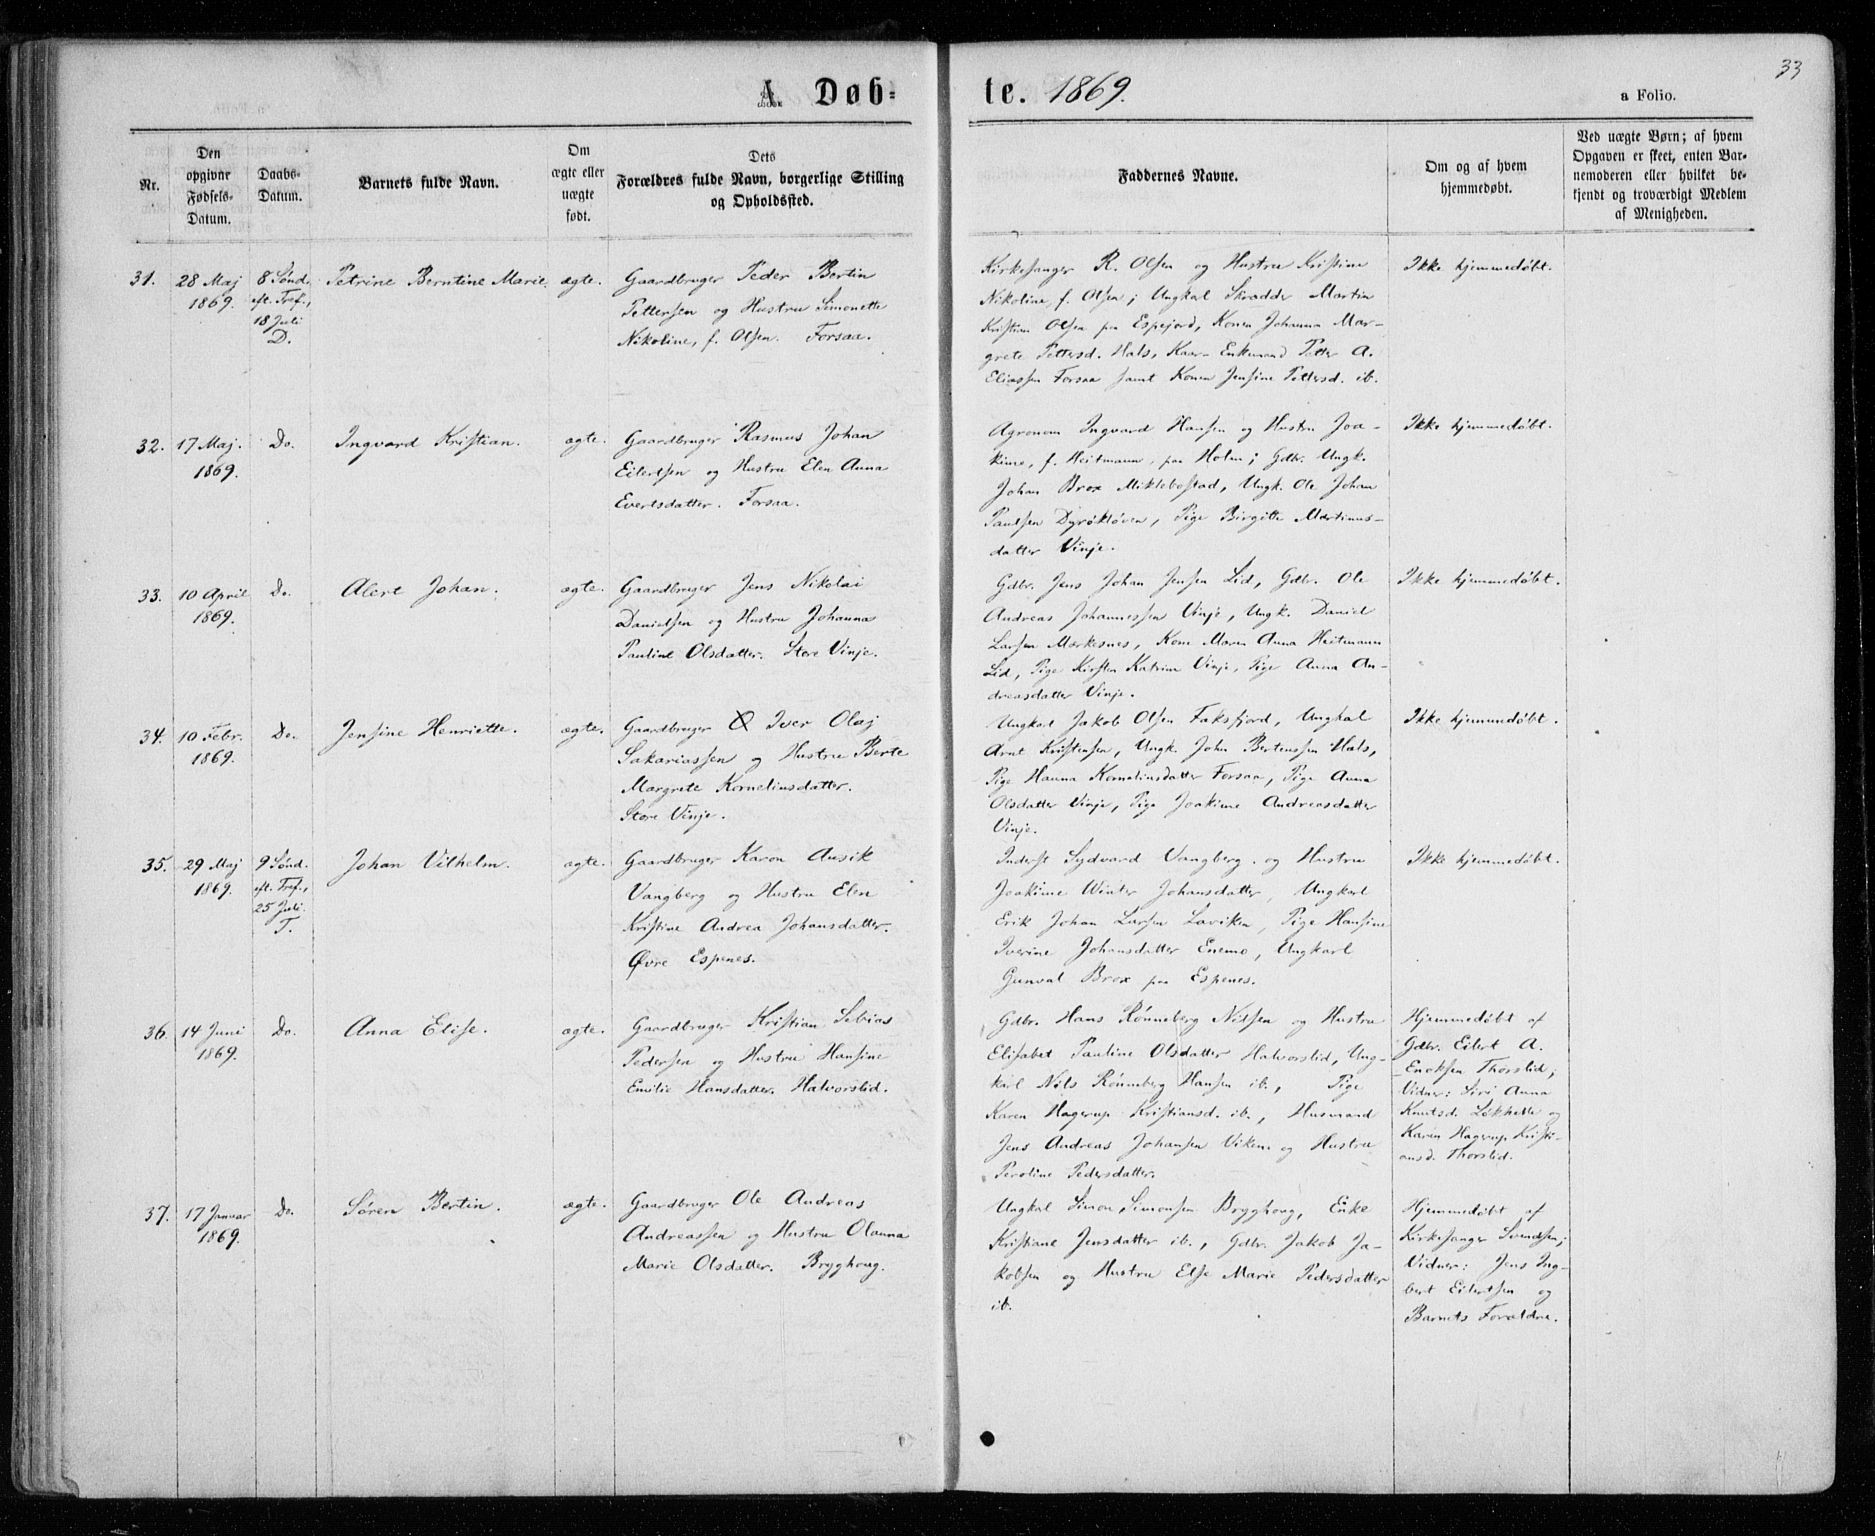 33
A Døb=
te. 1869.
a Folio.
Nr.
Den
opgivne
Fødsels-
Datum.
Daabs-
Datum.
Barnets fulde Navn.
Om
ægte eller
uægte
født.
Dets
Forældres fulde Navn, borgerlige Stilling
og Opholdssted.
Faddernes Navne.
Om og af hvem
hjemmedøbt.
Ved uægte Børn; af hvem
Opgaven er skeet, enten Bar-
nemoderen eller hvilket be-
kjendt og troværdigt Medlem
af Menigheden.
31.
28 Maj
1869.
8 Sønd.
eft. Tref.,
18 Juli
D.
Petrine Berntine Marie.
ægte.
Gaardbruger Peder Bertin
Pettersen og Hustru Simonette
Nikoline, f. Olsen. Forsaa.
Kirkesanger R. Olsen og Hustru Kristine
Nikoline, f. Olsen; Ungkal Skrædder Martin
Kristian Olsen paa Espejord, Konen Johanna Mar-
grete Pettersd. Hals, Kaar-Enkemand Petter A.
Eliassen Forsaa samt Konen Jensine Pettersd. ib.
Ikke hjemmedøbt.
32.
17 Maj.
1869.
Do.
Ingvard Kristian.
ægte.
Gaardbruger Rasmus Johan
Eilertsen og Hustru Elen Anna
Evertsdatter. Forsaa.
Agronom Ingvard Hansen og Hustru Joa-
kime, f. Heitmann, paa Holm; Gdbr. Ungk.
Johan Brox Miklebostad, Ungk. Ole Johan
Paulsen Dyrøkløven, Pige Birgitte Martinus-
datter Vinje.
Ikke hjemmedøbt.
33.
10 April
1869.
Do.
Alert Johan.
ægte.
Gaardbruger Jens Nikolai
Danielsen og Hustru Johanna
Pauline Olsdatter. Store Vinje.
Gdbr. Jens Johan Jensen Lid, Gdbr. Ole
Andreas Johannessen Vinje, Ungk. Daniel
Larsen Mærkesnes, Kone Maren Anna Heitmann
Lid, Pige Kirsten Katrine Vinje, Pige Anna An-
dreasdatter Vinje.
Ikke hjemmedøbt.
34.
10 Febr.
1869.
Do.
Jensine Henriette.
ægte.
Gaardbruger Iver Olaj
Sakariassen og Hustru Berte
Margrete Kornelinsdatter.
Store Vinje.
Ungkarl Jakob Olsen Faksfjord, Ungkal
Arnt Kristensen, Ungk. John Bertenssen Hals,
Pige Hanna Kornelinsdatter Forsaa, Pige Anna
Olsdatter Vinje, Pige Joakime Andreasdatter
Vinje.
Ikke hjemmedøbt.
35.
29 Maj
1869.
9 Sønd.
eft. Tref.,
25 Juli.
T.
Johan Vilhelm.
ægte.
Gaardbruger Karon Ausik
Vangberg og Hustru Elen
Kristine Andrea Johansdatter.
Øvre Espenes.
Inderst Sydvard Vangberg. og Hustru
Joakime Winter Johansdatter, Ungkarl
Erik Johan Larsen Laviken, Pige Hansine
Iverine Johansdatter Enemo, Ungkarl
Gunval Brox paa Espenes.
Ikke hjemmedøbt.
36.
14 Juni
1869.
Do.
Anna Elise.
ægte.
Gaardbruger Kristian Sebias
Pedersen og Hustru Hansine
Emilie Hansdatter. Halvorslid.
Gdbr. Hans Rønneberg Nilsen og Hustru
Elisabet Pauline Olsdatter Halvorslid, Ung-
karl Nils Rønneberg Hansen ib., Pige
Karen Hagerup Kristiansd. ib., Husmand
Jens Andreas Johansen Viken og Hustru
Peroline Pedersdatter.
Hjemmedøbt af
Gdbr. Eilert A.
Enoksen Thorslid;
Vidner: Siri Anna
Knutsd. Løkhelle og
Karen Hagerup Kristi-
ansd. Thorslid.
37.
17 Januar
1869.
Do.
Søren Bertin.
ægte.
Gaardbruger Ole Andreas
Andreassen og Hustru Olanna
Marie Olsdatter. Brygghoug.
Ungkal Simon Simonsen Brygghoug, Enke
Kristiane Jensdatter ib., Gdbr. Jakob Ja-
kobsen og Hustru Else Marie Pedersdatter
ib.
Hjemmedøbt af
Kirkesanger Svendsen;
Vidner: Jens Ing-
bert Eilertsen og
Barnets Forældre.